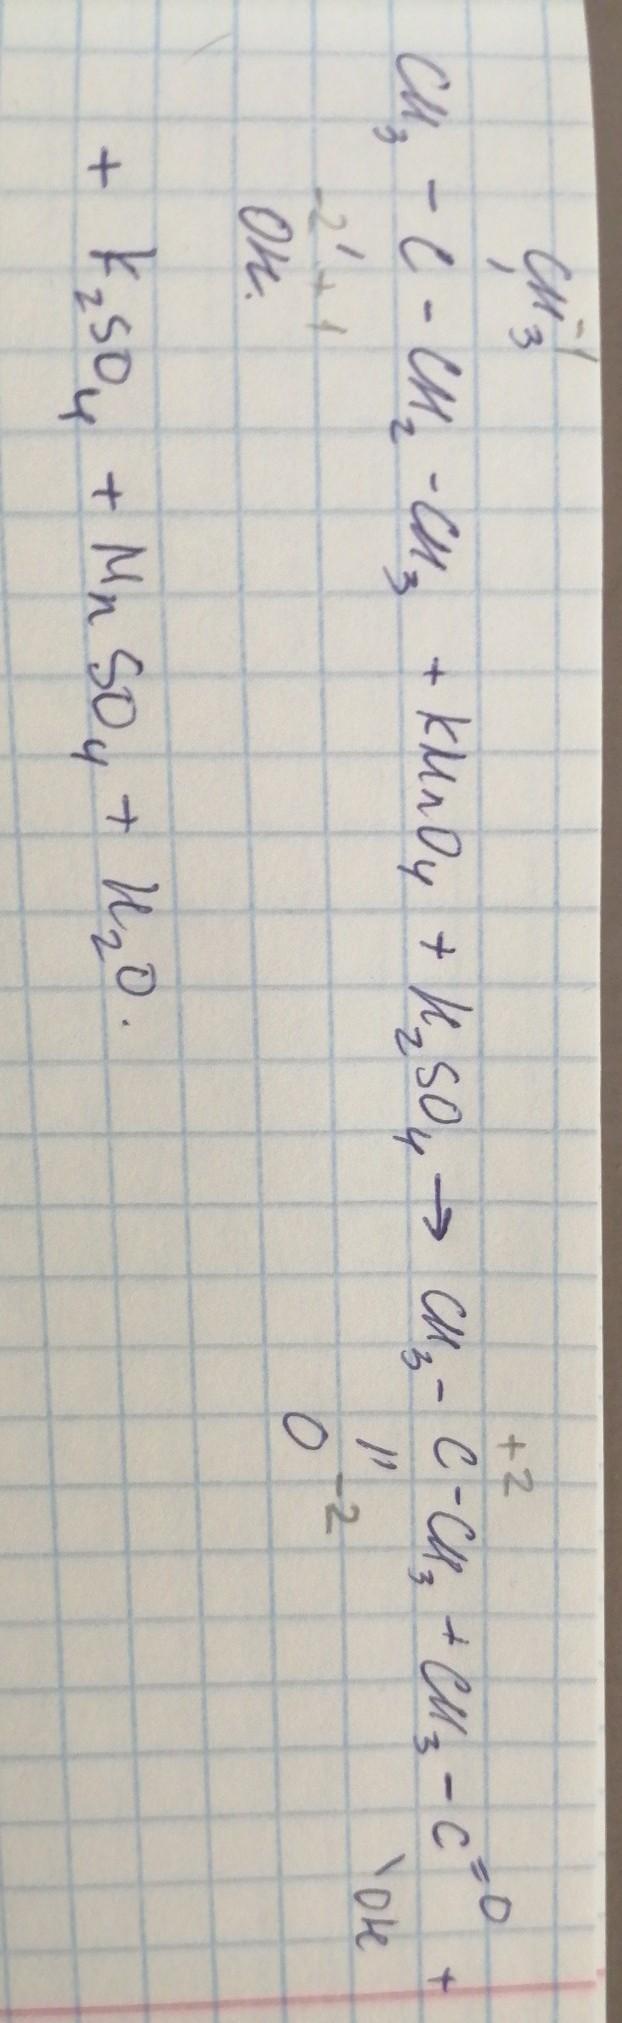 CH₃⁻¹
CH₃ - C - CH₂ - CH₃ + KMnO₄ + H₂SO₄ → CH₃ - C - CH₃ + CH₃ - C = O +
+2
-2 +1
OH.
||
O -2
\ OH
+ K₂SO₄ + MnSO₄ + H₂O.